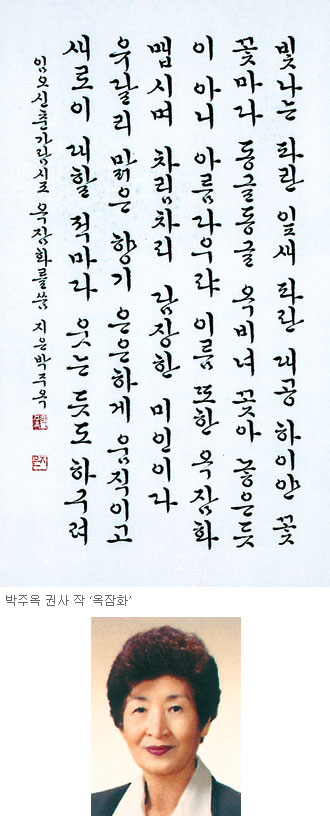 빛나는 파란 잎새 파란 대공 하이얀 꽃
꽃마다 동글동글 옥비녀 꽂아 놓은듯
이 아니 아름다우랴 이름 또한 옥잠화
맵시며 차림차리 담장한 미인이라
유달리 맑은 향기 은은하게 움직이고
새로이 대할 적마다 웃는 듯도 하구려
임오신춘가람시조 옥잠화를 씀 지은박주옥
박주옥 권사 작 ‘옥잠화’